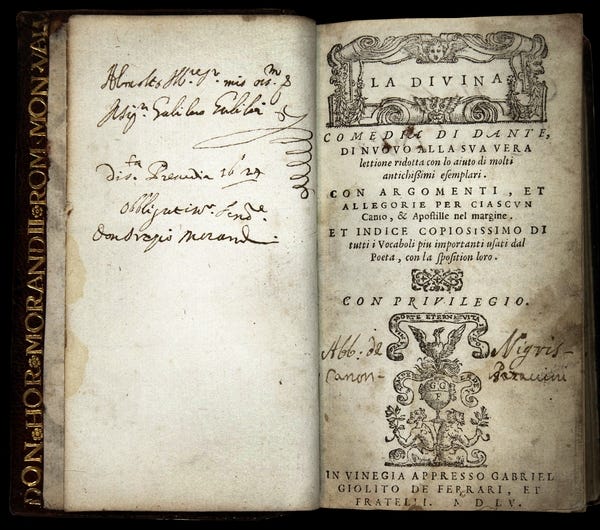 DON HOR MORANDI ROM MON VAL
Galileo Galilei
1624
Morandi
LA DIVINA
COMEDIA DI DANTE,
DI NVOVO ALLA SVA VERA
lettione ridotta con lo aiuto di molti
antichissimi esemplari.
CON ARGOMENTI, ET
ALLEGORIE PER CIASCVN
Canto, & Apostille nel margine.
ET INDICE COPIOSISSIMO DI
tutti i Vocaboli piu importanti usati dal
Poeta, con la sposition loro.
CON PRIVILEGIO.
Abb: de Nigris
Canon-
GGF
IN VINEGIA APPRESSO GABRIEL
GIOLITO DE FERRARI, ET
FRATELLI. MDLV.